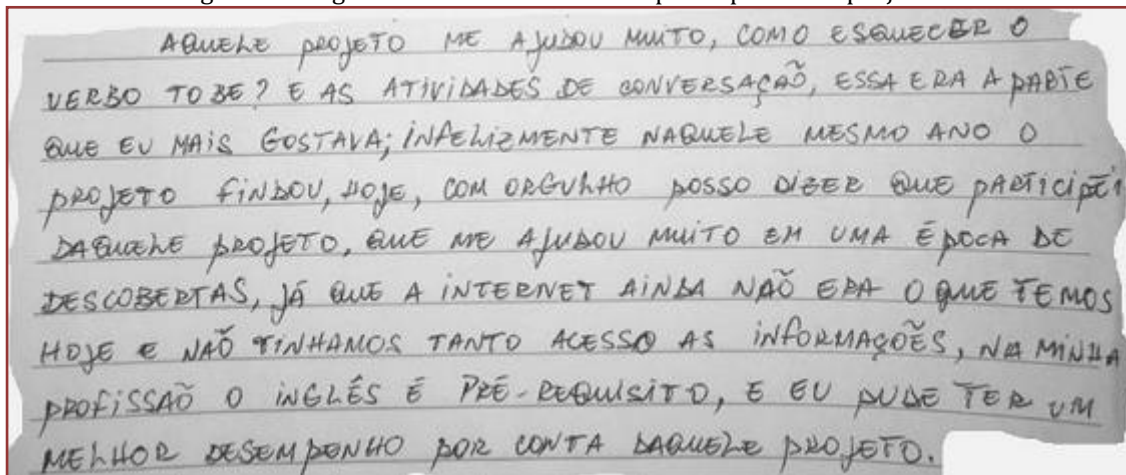 AQUELE PROJETO ME AJUDOU MUITO, COMO ESQUECER O
VERBO TO BE? E AS ATIVIDADES DE CONVERSAÇÃO, ESSA ERA A PARTE
QUE EU MAIS GOSTAVA; INFELIZMENTE NAQUELE MESMO ANO O
PROJETO FINDOU, HOJE, COM ORGULHO POSSO DIZER QUE PARTICIPEI
DAQUELE PROJETO, QUE ME AJUDOU MUITO EM UMA ÉPOCA DE
DESCOBERTAS, JÁ QUE A INTERNET AINDA NÃO ERA O QUE TEMOS
HOJE E NÃO TINHAMOS TANTO ACESSO AS INFORMAÇÕES, NA MINHA
PROFISSÃO O INGLÊS É PRÉ-REQUISITO, E EU PUDE TER UM
MELHOR DESEMPENHO POR CONTA DAQUELE PROJETO.